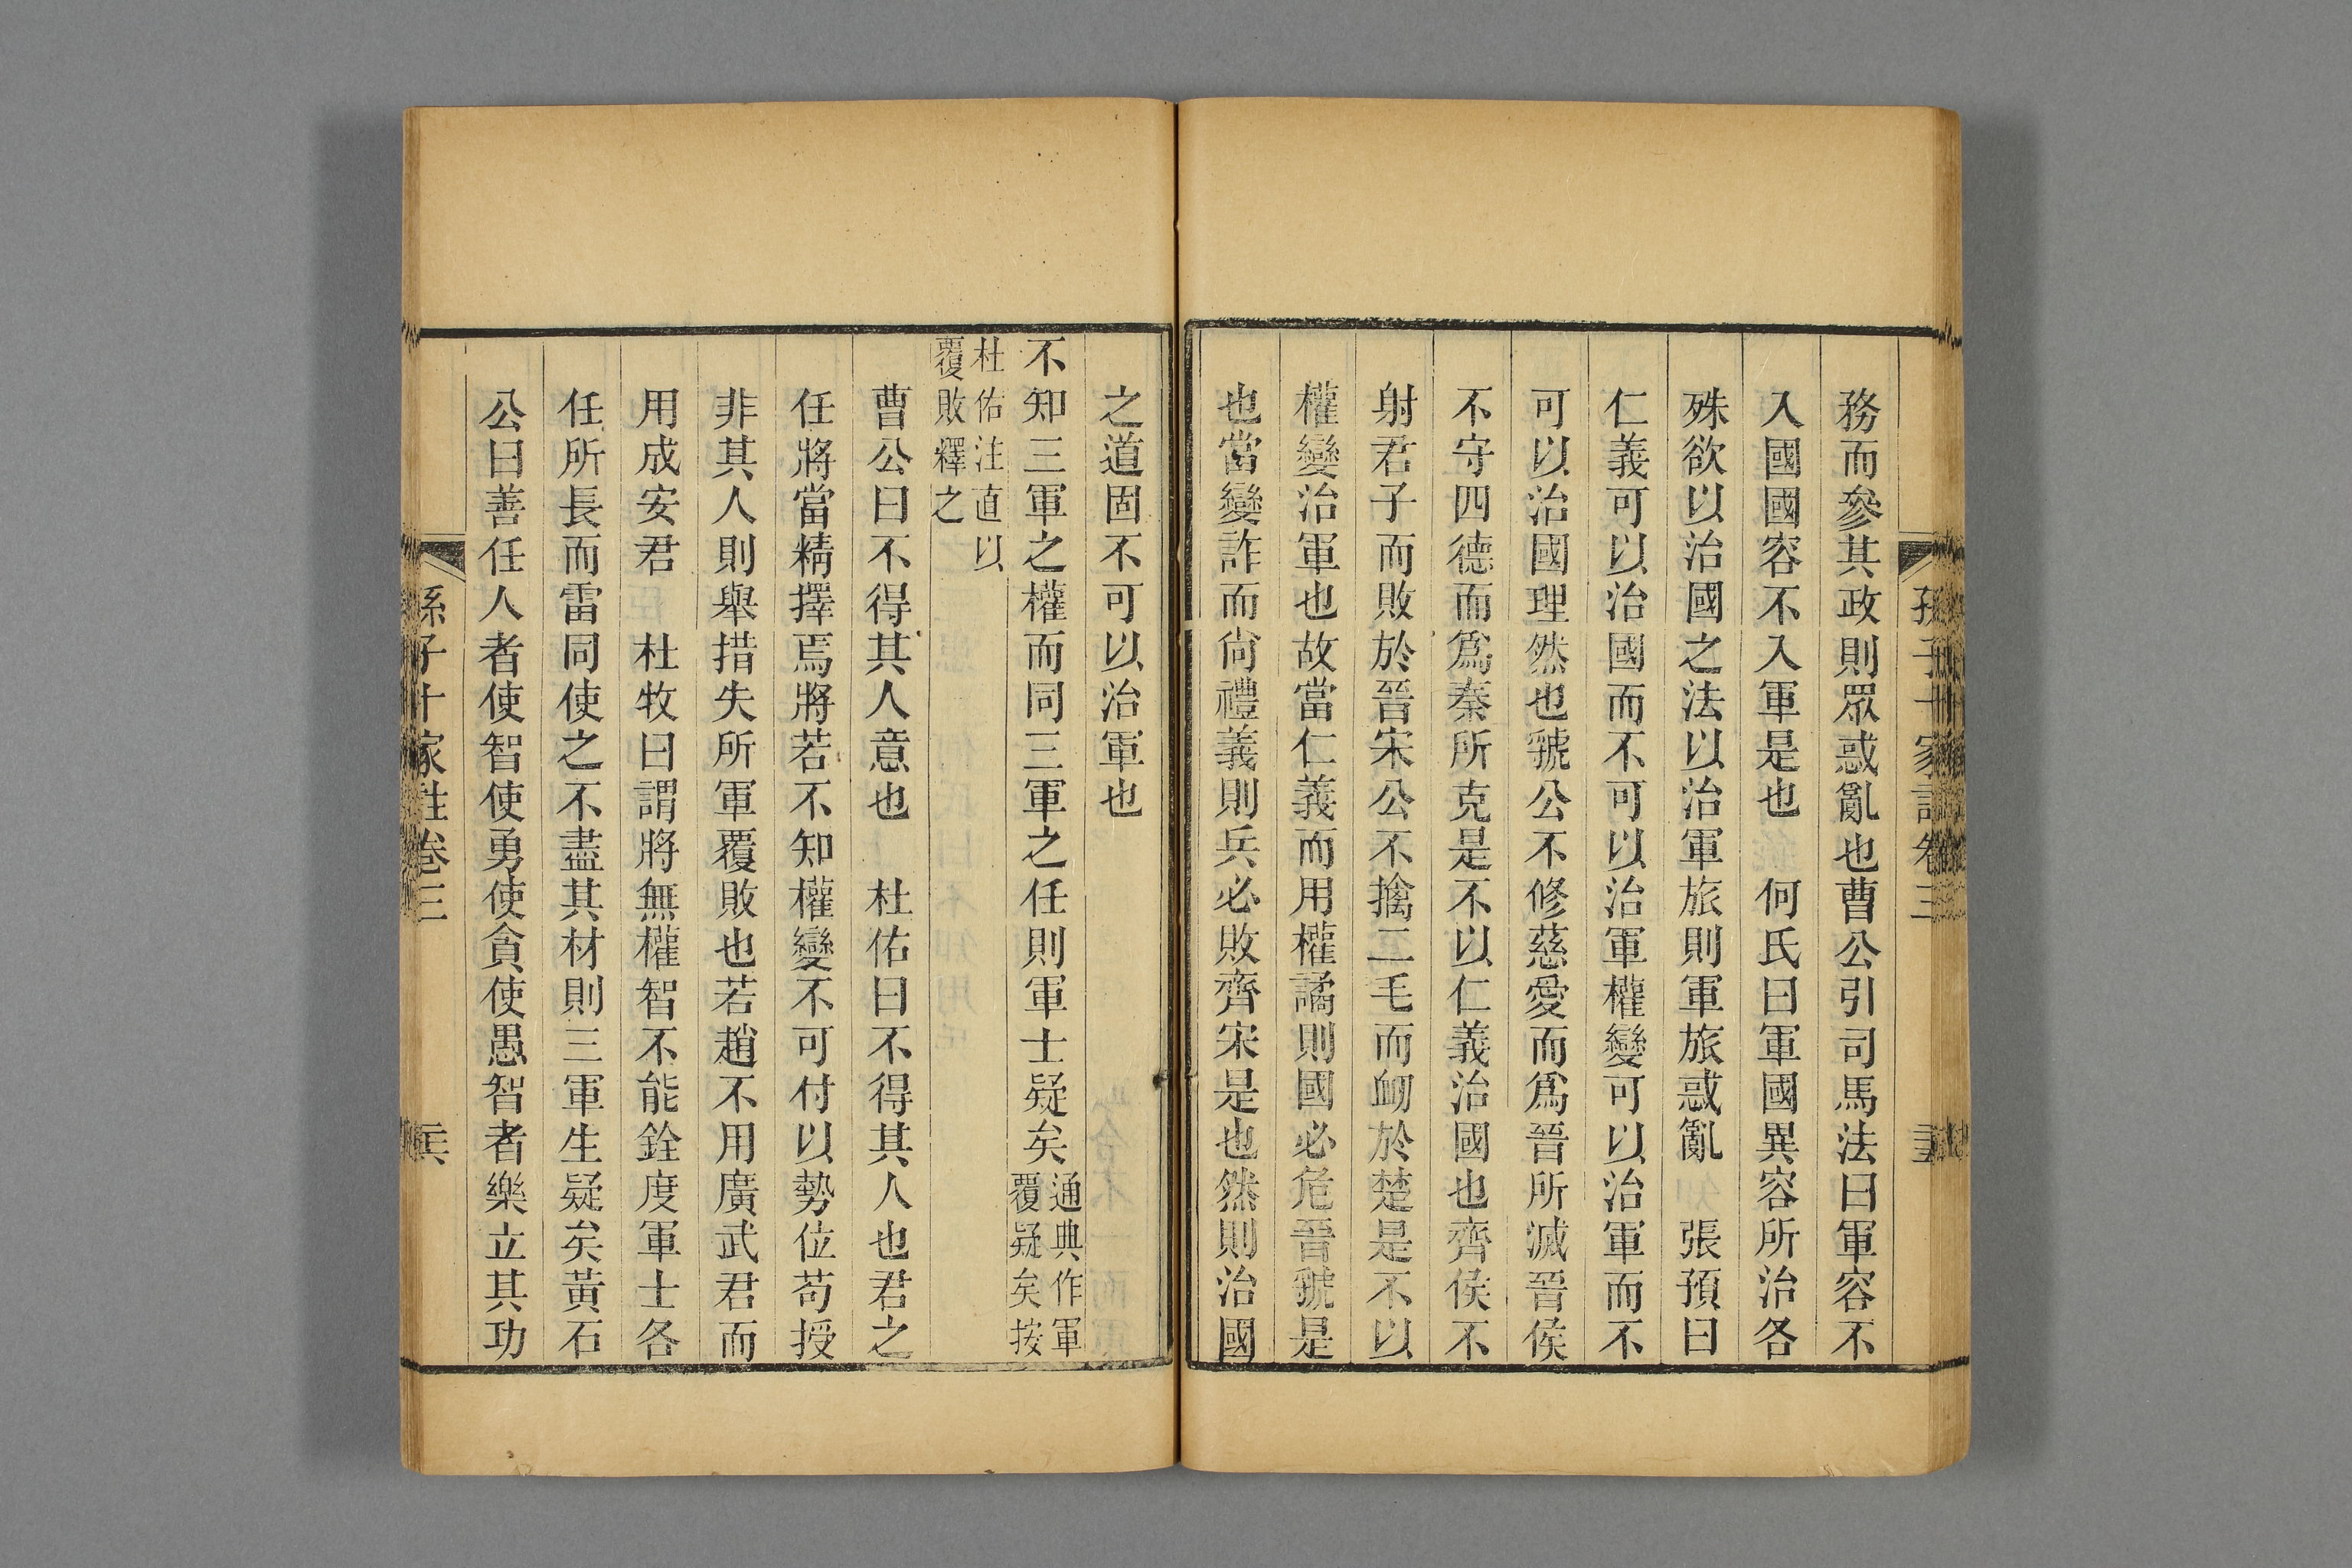 務而參其政則眾惑亂也曹公引司馬法曰軍容不
入國國容不入軍是也 何氏曰軍國異容所治各
殊欲以治國之法以治軍旅則軍旅惑亂 張預曰
仁義可以治國而不可以治軍權變可以治軍而不
可以治國理然也虢公不修慈愛而爲晉所滅晉侯
不守四德而爲秦所克是不以仁義治國也齊侯不
射君子而敗於晉宋公不擒二毛而衂於楚是不以
權變治軍也故當仁義而用權譎則國必危晉虢是
也當變詐而尙禮義則兵必敗齊宋是也然則治國
之道固不可以治軍也
不知三軍之權而同三軍之任則軍士疑矣
通典作軍
覆疑矣按
杜佑注直以
覆敗釋之
曹公曰不得其人意也 杜佑曰不得其人也君之
任將當精擇焉將若不知權變不可付以勢位苟授
非其人則舉措失所軍覆敗也若趙不用廣武君而
用成安君 杜牧曰謂將無權智不能銓度軍士各
任所長而雷同使之不盡其材則三軍生疑矣黃石
公曰善任人者使智使勇使貪使愚智者樂立其功
孫子十家註卷三